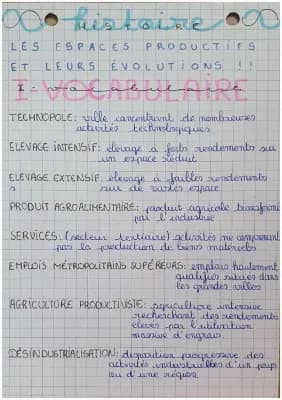 histoire
HISTOIRE
LES ESPACES PRODUCTIFS
ET LEURS ÉVOLUTIONS !!
I - vocabulaire
I VOCABULAIRE
TECHNOPOLE: ville concentrant de nombreuses
activités technologiques
ELEVAGE INTENSIF: elevage à forts rendements sur
un espace réduit
ELEVAGE EXTENSIF: elevage à faibles rendements
s sur de vastes espace
PRODUIT AGROALIMENTAIRE: produit agricole transformé
par l'industrie
SERVICES: (secteur tertiaire) activités ne comprenant
pas la production de biens matériels
EMPLOIS MÉTROPOLITAINS SUPÉREURS: emplois hautement
qualifiés situées dans
les grandes villes
AGRICULTURE PRODUCTIVISTE: agriculture intensive
recherchant des rendements
élevés par l'utilisation
massive d'engrais.
DÉSINDUSTRIALISATION: disparition progressive des
activités industrielles d'un pays
ou d'une région